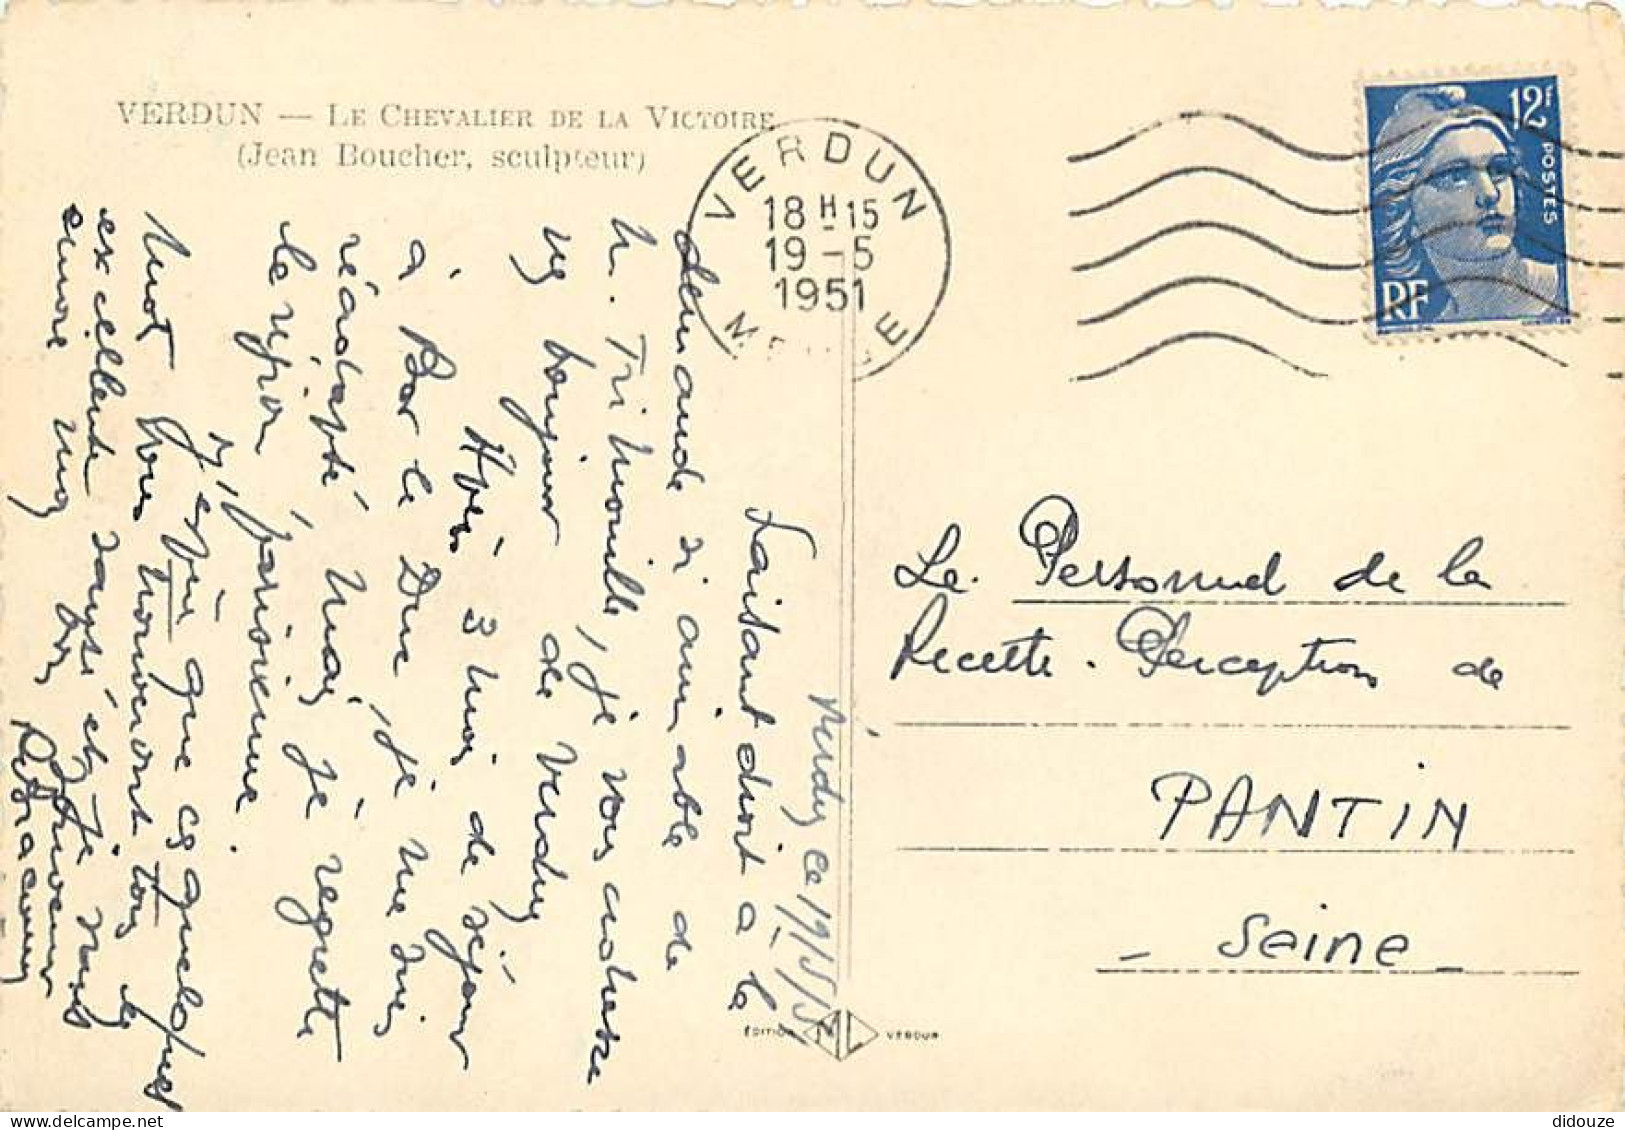 VERDUN — LE CHEVALIER DE LA VICTOIRE
(Jean Boucher, sculpteur)
VERDUN
18 H 15
19 - 5
1951
MEUSE
12F
POSTES
RF
Verdun ce 19/5/51
Faisant droit à la
demande si aimable de
M. Trimouille, je vous adresse
un bonjour de Verdun
Après 3 mois de séjour
à Bar le Duc, je me suis
réadapté mais je regrette
la région parisienne.
J'espère que ces quelques
mot vous trouveront tous en
excellente santé et je vous
envoie mon bon souvenir
Le Personnel de la
Recette-Perception de
PANTIN
- Seine -
ÉDITION VERDUN
didouze